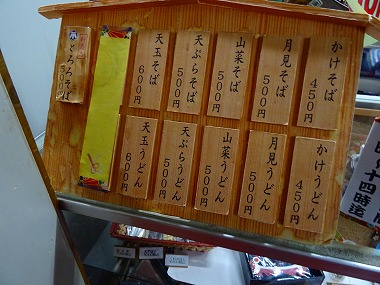 かけそば
450円
月見そば
500円
山菜そば
500円
天ぷらそば
500円
天玉そば
600円
とろろそば
500円
かけうどん
450円
月見うどん
500円
山菜うどん
500円
天ぷらうどん
500円
天玉うどん
600円
十四時迄